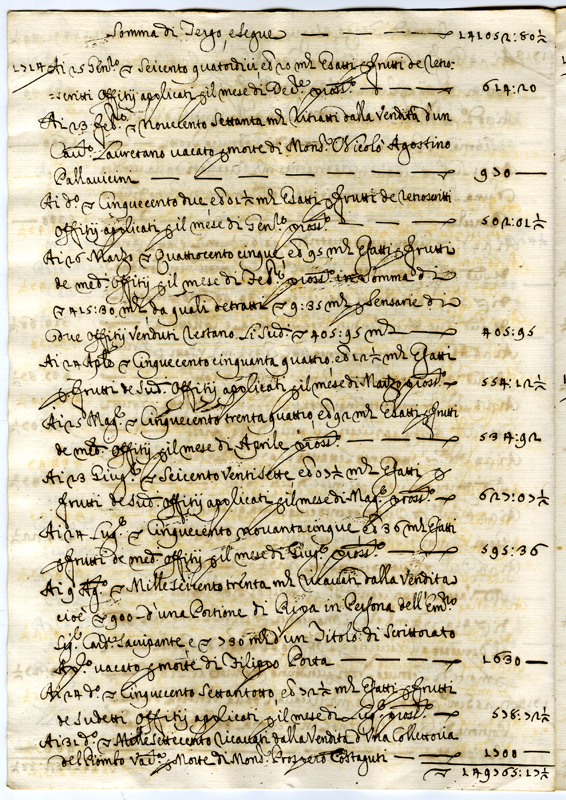 Somma di Tergo, e segue — — — — — 141052:80½
1714 Ai 25 Genro ∇ Seicento quatordici, ed 20 mta Esatti p frutti de retro:
=scritti Offitij applicati p il mese di Dcbre pross° — 614:20
Ai 23 Febro ∇ Novecento Settanta mta ritratti dalla Vendita d'un
Cavto Lauretano vacato p morte di Monsr Nicolò Agostino
Pallavicini — — — — — 970 —
Ai do ∇ Cinquecento due ed 01½ mta Esatti p frutti de retroscritti
Offitij applicati p il mese di Genro pross° — 502:01½
Ai 26 Marzo ∇ Quattrocento cinque ed 95 mta Esatti p frutti
de medi Offitij p il mese di Febro pross° in Somma di
∇ 415:30 mta da quali detratti ∇ 9:35 mta p Sensarie di
due Offitij Venduti restano li Sudi ∇ 405:95 mta — 405:95
Ai 24 Aple ∇ Cinquecento cinquanta quattro, ed 12½ mta Esatti
p frutti de Sudi Offitij applicati p il mese di Marzo pross° — 554:12½
Ai 25 Mago ∇ Cinquecento trenta quattro, ed 92 mta Esatti p frutti
de medi Offitij p il mese di Aprile pross° — 534:92
Ai 23 Giugo ∇ Seicento Ventisette ed 07½ mta Esatti p
frutti de Sudi Offitij applicati p il mese di Mago pross° — 627:07½
Ai 24 Lugo ∇ Cinquecento novanta cinque ed 36 mta Esatti
p frutti de medi Offitij p il mese di Giugo pross° — 595:36
Ai 9 Ago ∇ Mille seicento trenta mta ricavati dalla Vendita
cioè ∇ 900 – d'una Portione di Ripa in Persona dell'Emo
Sigr Cardl e ∇ 730 mta d'un Titolo di Scrittorato
Apo vacato p morte di Filippo Porta — — — — 1630 —
Ai 24 do ∇ Cinquecento Settantotto, ed 72½ mta Esatti p frutti
de Sudetti Offitij applicati p il mese di Lugo pross° — 578:72½
Ai 31 do ∇ Mille Settecento ricavati dalla Vendita d'Una Collettoria
del Piombo Vacta p Morte di Monsr Prospero Costaguti — 1700 —
∇ 149765:17½